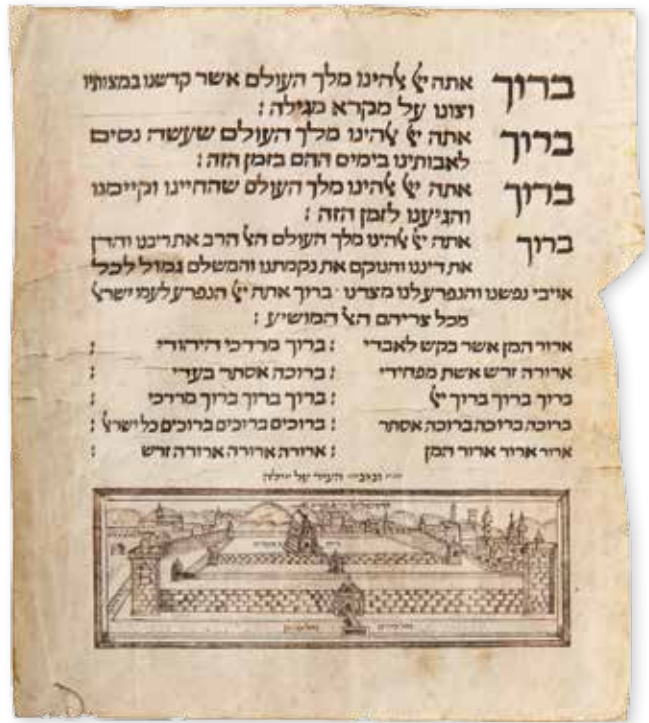 ברוך אתה יי אלהינו מלך העולם אשר קדשנו במצותיו
וצונו על מקרא מגילה :
ברוך אתה יי אלהינו מלך העולם שעשה נסים
לאבותינו בימים ההם בזמן הזה :
ברוך אתה יי אלהינו מלך העולם שהחיינו וקיימנו
והגיענו לזמן הזה :
ברוך אתה יי אלהינו מלך העולם האל הרב את ריבנו והדן
את דיננו והנוקם את נקמתנו והמשלם גמול לכל
אויבי נפשנו והנפרע לנו מצרנו · ברוך אתה יי הנפרע לעמו ישראל
מכל צריהם האל המושיע :
ארור המן אשר בקש לאבדי : ברוך מרדכי היהודי :
ארורה זרש אשת מפחידי : ברוכה אסתר בעדי :
ברוך ברוך ברוך יי : ברוך ברוך ברוך מרדכי :
ברוכה ברוכה ברוכה אסתר : ברוכים ברוכים ברוכים כל ישראל :
ארור ארור ארור המן : ארורה ארורה ארורה זרש :